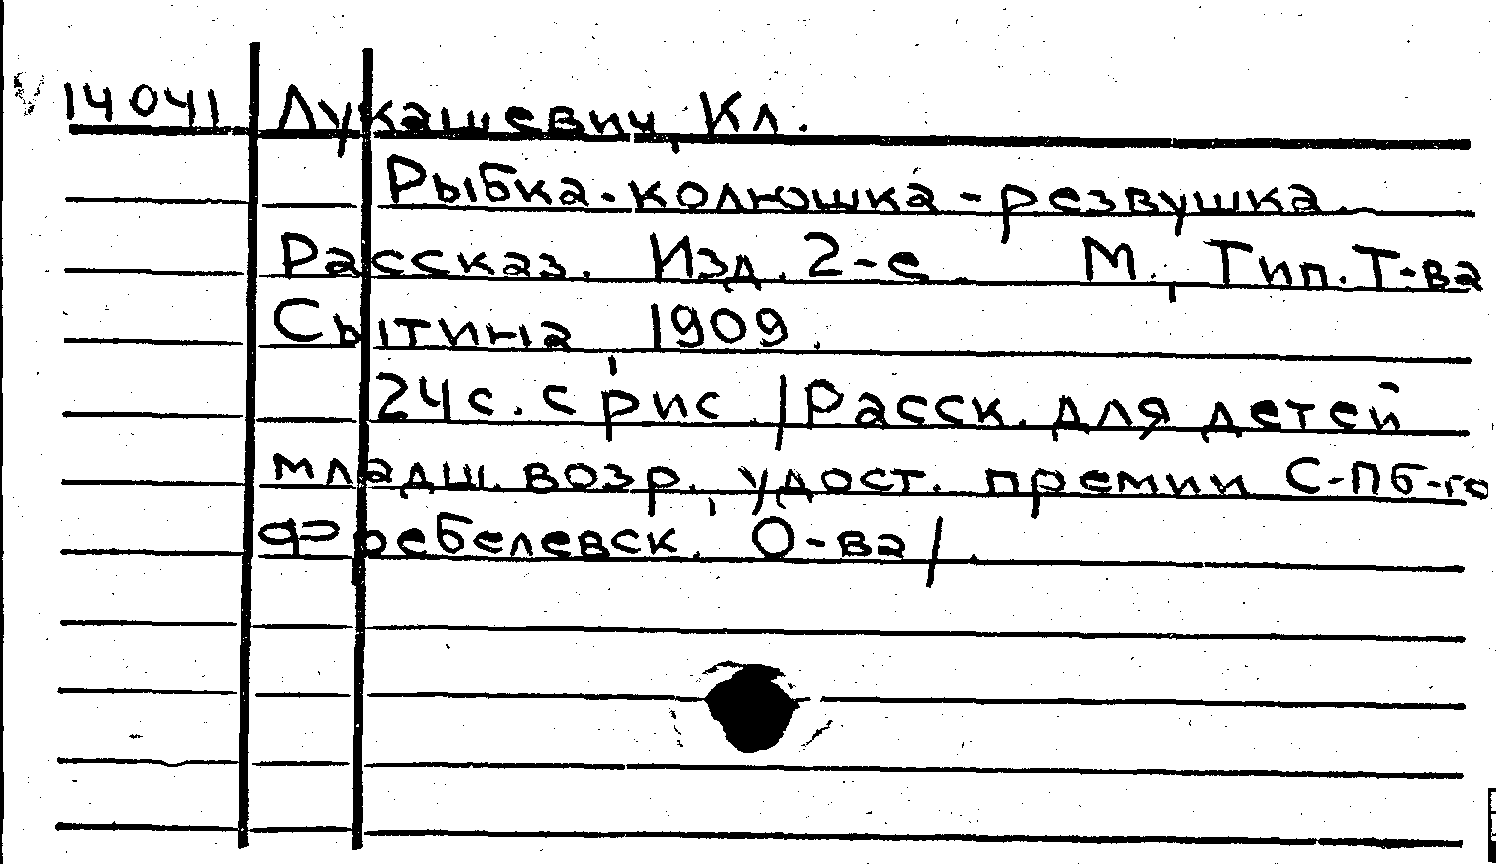 14041 Лукашевич, Кл.
Рыбка-колюшка-резвушка.
Рассказ. Изд. 2-е. М., Тип. Т-ва
Сытина 1909.
24 с. с рис. /Расск. для детей
младш. возр., удост. премии С-Пб-го
Фребелевск. О-ва/.